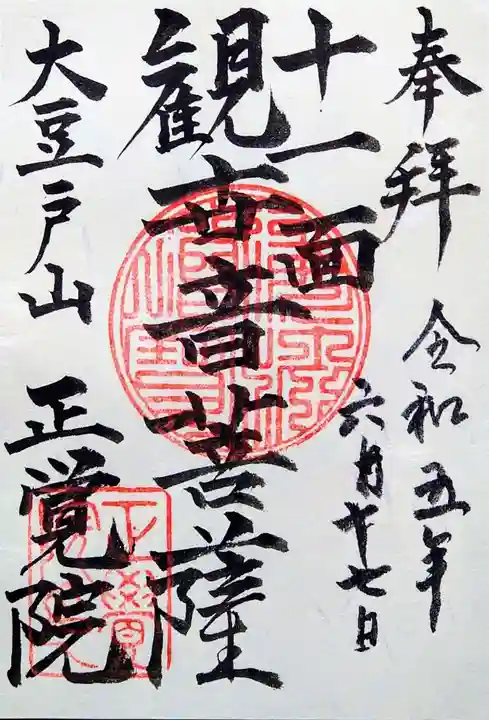 奉拝
令和五年
六月十七日
十一面
観世音菩薩
大豆戸山
正覚院